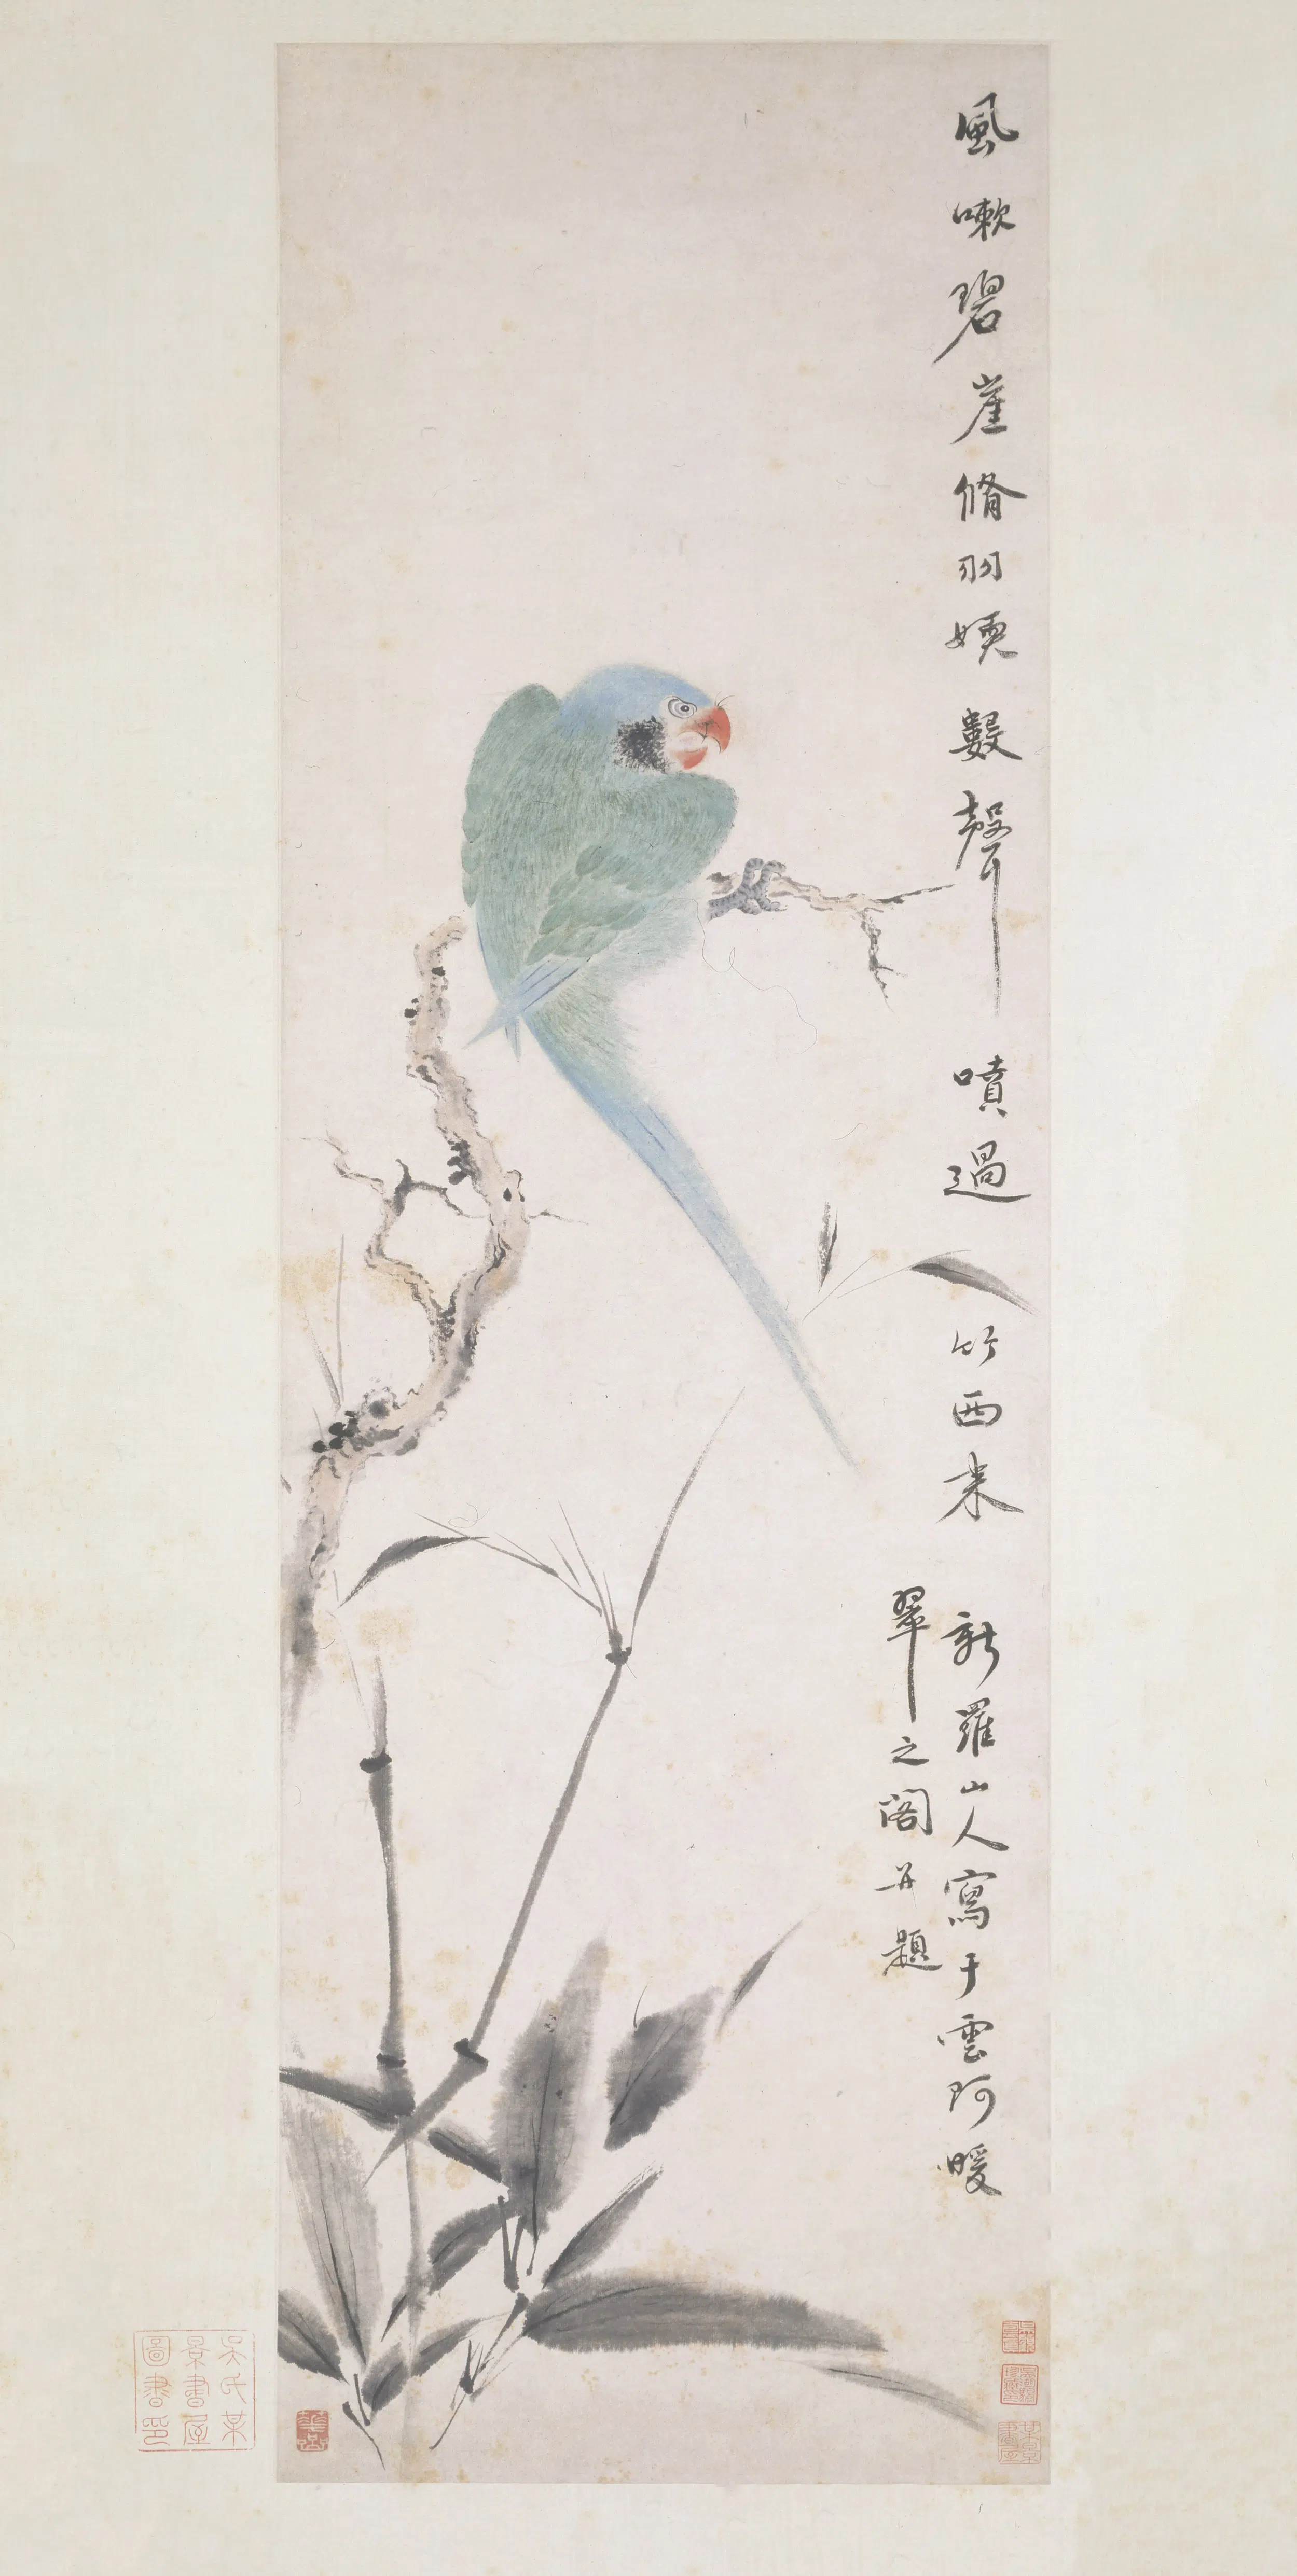 風嗽碧崖脩羽㛟數聲噴過竹西来
新羅山人寫于雲阿暖
翠之閣并題
吳氏某
景書屋
圖書印
華喦